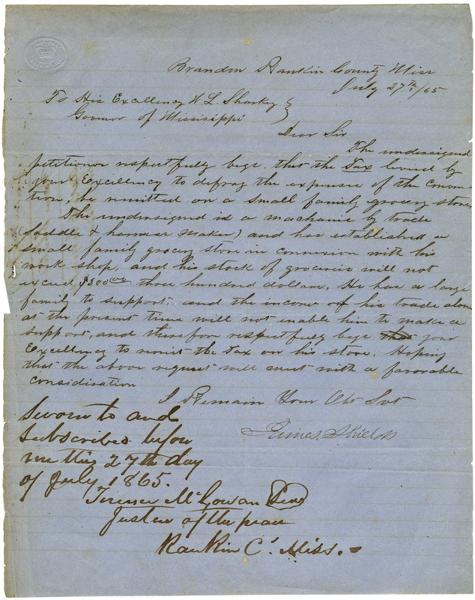 Brandon Rankin County Miss
July 27th/65
To His Excellency W L Sharkey
Govnor of Mississippi
Dear Sir
The undersigned
petitioner respectfully begs, that the Tax levied by
your Excellency to defray the expenses of the Conven
tion, be remitted on a small family grocery store
The undersigned is a machanic by trade
(Saddle & harness maker) and has established a
small family grocery store in connexion with his
work shop, and his stock of groceries will not
exceed $300 three hundred dollars. He has a large
family to support, and the income of his trade alone
at the present time will not enable him to make a
support, and therefore respectfully begs your
Excellency to remit the Tax on his store. Hoping
that the above request will meet with a favorable
consideration
I Remain Your Obt Svt
James Shields
Sworn to and
subscribed before
me this 27th day
of July 1865.
McGowan Seal
Justice of the peace
Rankin Co. Miss.